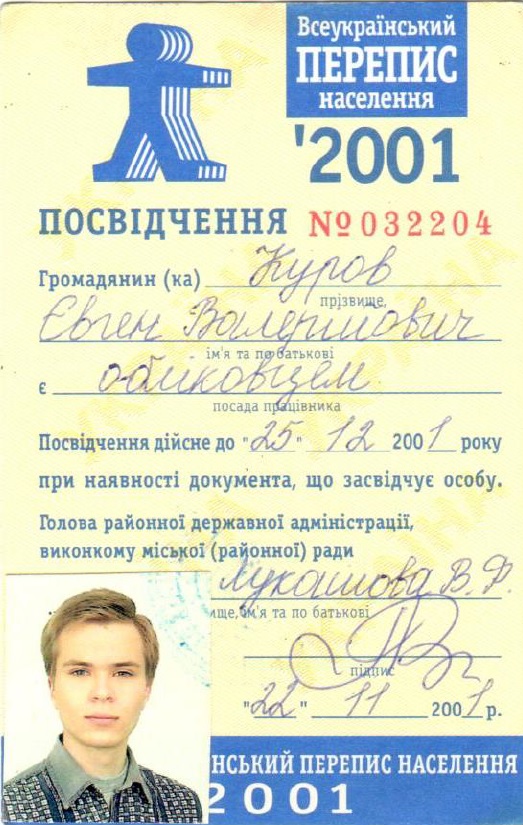 Всеукраїнський
ПЕРЕПИС
населення
'2001
ПОСВІДЧЕННЯ №032204
Громадянин (ка) Куров
прізвище,
Євген Валерійович
ім'я та по батькові
є обліковцем
посада працівника
Посвідчення дійсне до "25" 12 2001 року
при наявності документа, що засвідчує особу.
Голова районної державної адміністрації,
виконкому міської (районної) ради
Лукашова В.Ф.
ище, ім'я та по батькові
підпис
"22" 11 2001 р.
НСЬКИЙ ПЕРЕПИС НАСЕЛЕННЯ
2001